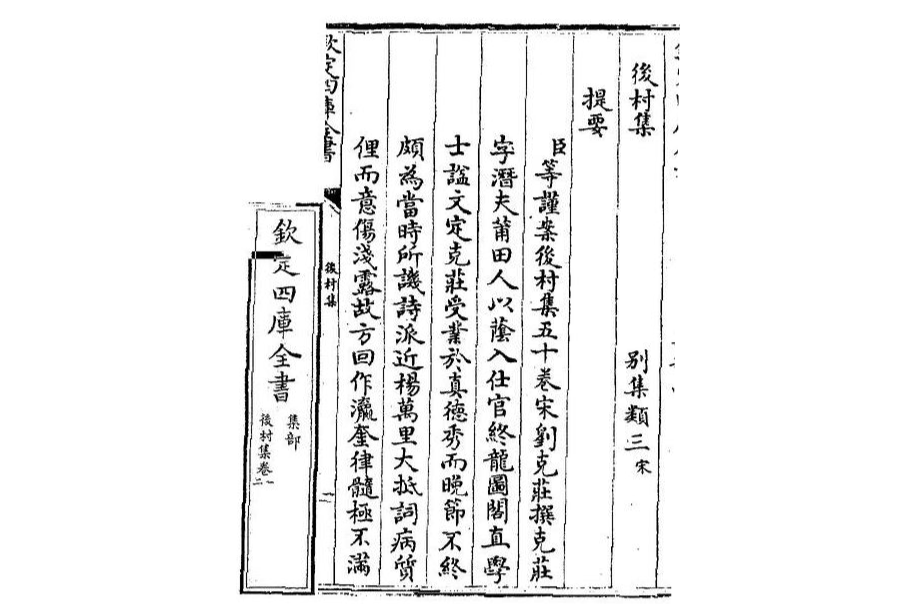 後村集　別集類三宋
提要
臣等謹案後村集五十卷宋劉克莊撰克莊
字潛夫莆田人以蔭入仕官終龍圖閣直學
士諡文定克莊受業於真德秀而晚節不終
頗為當時所譏詩派近楊萬里大抵詞病質
俚而意傷淺露故方回作瀛奎律髓極不滿
欽定四庫全書
後村集
一
欽定四庫全書
集部
後村集卷一二